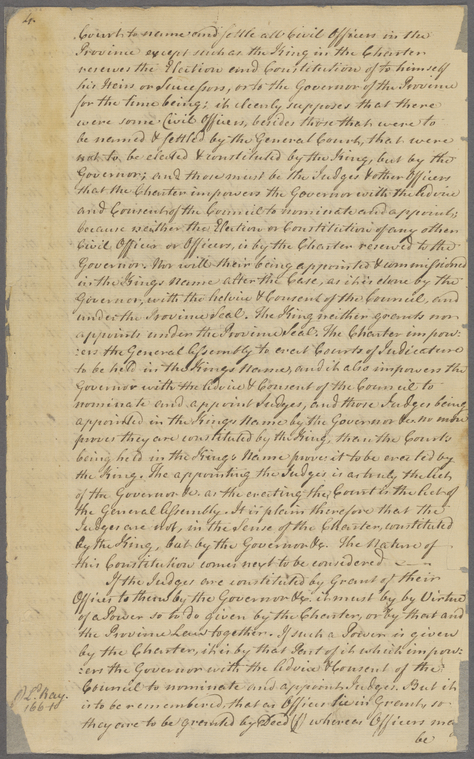 4.
Court to name and settle all Civil Officers in the
Province except such as the King in the Charter
reserves the Election and Constitution of to himself
his Heirs or Successors, or to the Governor of the Province
for the time being; it clearly supposes that there
were some Civil Officers, besides those that were to
be named & settled by the General Court, that were
not to be elected & constituted by the King, but by the
Governor; and those must be the Judges & other Officers
that the Charter impowers the Governor with the Advice
and Consent of the Council to nominate and appoint;
because neither the Election or Constitution of any other
Civil Officer or Officers, is by the Charter reserved to the
Governor. Nor will their being appointed & commissioned
in the Kings Name alter the Case, as it is done by the
Governor, with the Advice & Consent of the Council, and
under the Province Seal. The King neither grants nor
appoints under the Province Seal. The Charter impow-
:ers the General Assembly to erect Courts of Judicature
to be held in the Kings Name, and it also impowers the
Governor with the Advice & Consent of the Council to
nominate and appoint Judges, and those Judges being
appointed in the Kings Name by the Governor &c no more
proves they are constituted by the King, than the Courts
being held in the Kings Name proves it to be erected by
the King. The appointing the Judges is as truly the Act
of the Governor &c. as the erecting the Court is the Act of
the General Assembly. It is plain therefore that the
Judges are not, in the Sense of the Charter, constituted
by the King, but by the Governor &c. The Nature of
this Constitution comes next to be considered.
If the Judges are constituted by Grant of their
Offices to them by the Governor &c. it must be by Virtue
of a Power so to do given by the Charter, or by that and
the Province Law together. If such a Power is given
by the Charter, it is by that Part of it which impow-
:ers the Governor with the Advice & Consent of the
Council to nominate and appoint Judges. But it
is to be remembered, that as Offices lie in Grant, so
they are to be granted by Deed (f) whereas Officers may
Ray.
166
be